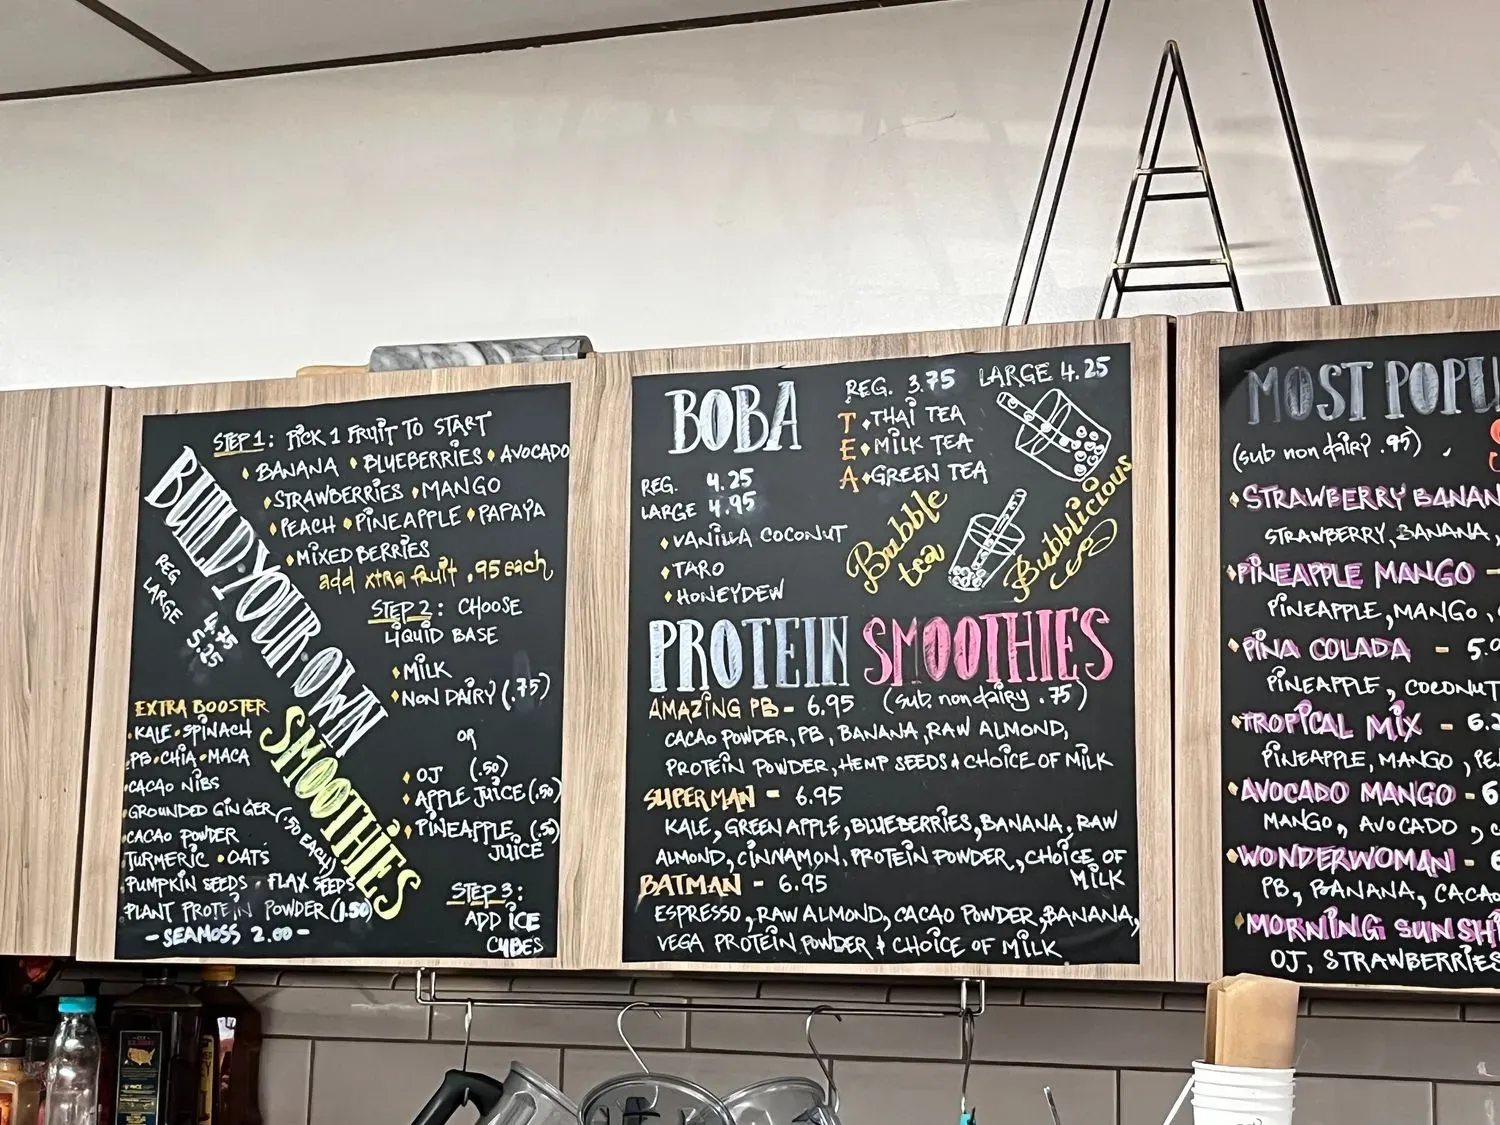 STEP 1: PICK 1 FRUIT TO START
BANANA BLUEBERRIES AVOCADO
STRAWBERRIES MANGO
PEACH PINEAPPLE PAPAYA
MIXED BERRIES
add xtra fruit .95 each
BUILD YOUR OWN
SMOOTHIES
REG 4.75
LARGE 5.25
STEP 2: CHOOSE
LIQUID BASE
MILK
NON DAIRY (.75)
OR
OJ (.50)
APPLE JUICE (.50)
PINEAPPLE (.50)
JUICE
STEP 3:
ADD ICE
CUBES
EXTRA BOOSTER
KALE SPINACH
PB CHIA MACA
CACAO NIBS
GROUNDED GINGER (.50 EACH)
CACAO POWDER
TURMERIC OATS
PUMPKIN SEEDS FLAX SEEDS
PLANT PROTEIN POWDER (1.50)
- SEAMOSS 2.00 -
BOBA
REG. 4.25
LARGE 4.95
VANILLA COCONUT
TARO
HONEYDEW
REG. 3.75 LARGE 4.25
TEA
THAI TEA
MILK TEA
GREEN TEA
Bubble
tea
Bubblicious
PROTEIN SMOOTHIES
AMAZING PB - 6.95 (sub. nondairy .75)
CACAO POWDER, PB, BANANA, RAW ALMOND,
PROTEIN POWDER, HEMP SEEDS & CHOICE OF MILK
SUPERMAN - 6.95
KALE, GREEN APPLE, BLUEBERRIES, BANANA, RAW
ALMOND, CINNAMON, PROTEIN POWDER, CHOICE OF
MILK
BATMAN - 6.95
ESPRESSO, RAW ALMOND, CACAO POWDER, BANANA,
VEGA PROTEIN POWDER & CHOICE OF MILK
MOST POPU
(sub non dairy .95)
STRAWBERRY BANAN
STRAWBERRY, BANANA,
PINEAPPLE MANGO -
PINEAPPLE, MANGO,
PINA COLADA - 5.
PINEAPPLE, COCONUT
TROPICAL MIX - 6.
PINEAPPLE, MANGO, PE
AVOCADO MANGO - 6
MANGO, AVOCADO,
WONDERWOMAN -
PB, BANANA, CACAO
MORNING SUNSHI
OJ, STRAWBERRIES